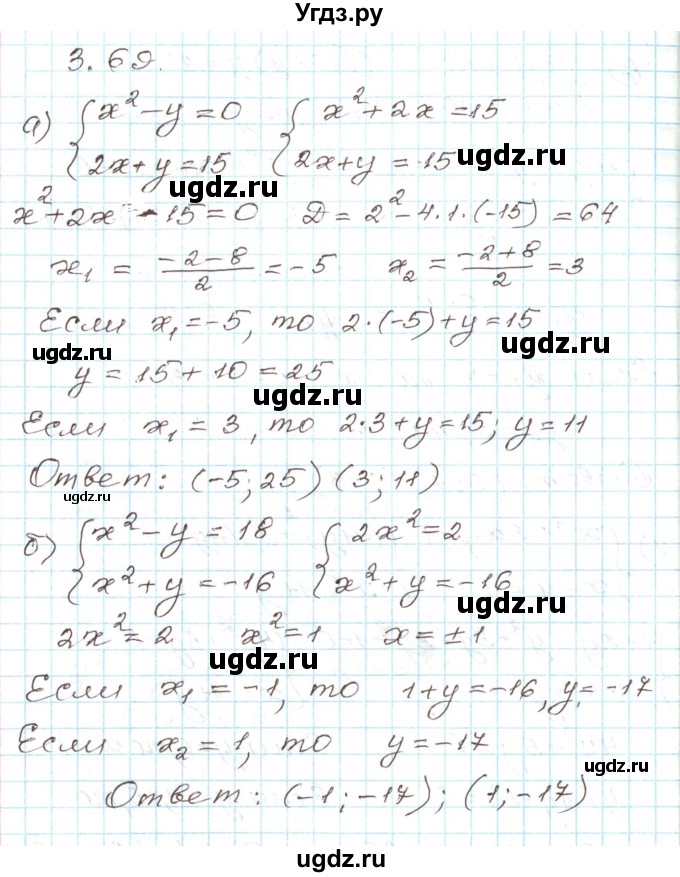 Угдз.ру
3.69.
а) { x² - y = 0 { x² + 2x = 15
2x + y = 15 2x + y = 15
ugdz.ru
ugdz.ru
x² + 2x - 15 = 0 D = 2² - 4·1·(-15) = 64
x₁ = (-2-8)/2 = -5 x₂ = (-2+8)/2 = 3
Если x₁ = -5, то 2·(-5) + y = 15
ugdz.ru
ugdz.ru
y = 15 + 10 = 25
ugdz.ru
Если x₁ = 3, то 2·3 + y = 15; y = 11
Ответ: (-5; 25) (3; 11)
ugdz.ru
б) { x² - y = 18 { 2x² = 2
x² + y = -16 x² + y = -16
ugdz.ru
2x² = 2 x² = 1 x = ±1
ugdz.ru
Если x₁ = -1, то 1 + y = -16, y = -17
Если x₂ = 1, то y = -17
ugdz.ru
Ответ: (-1; -17); (1; -17)
ugdz.ru